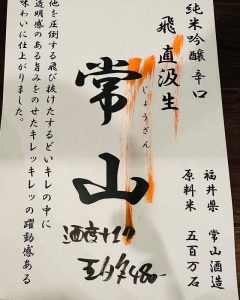 純米吟醸 辛口
飛 直汲生
福井県 常山酒造
原料米 五百万石
常山
じょうざん
他を圧倒する飛び抜けたするどいキレの中に
透明感のある旨みをのせたキレッキレッの躍動感ある
味わいに仕上がりました。
酒度+17
五勺 480-